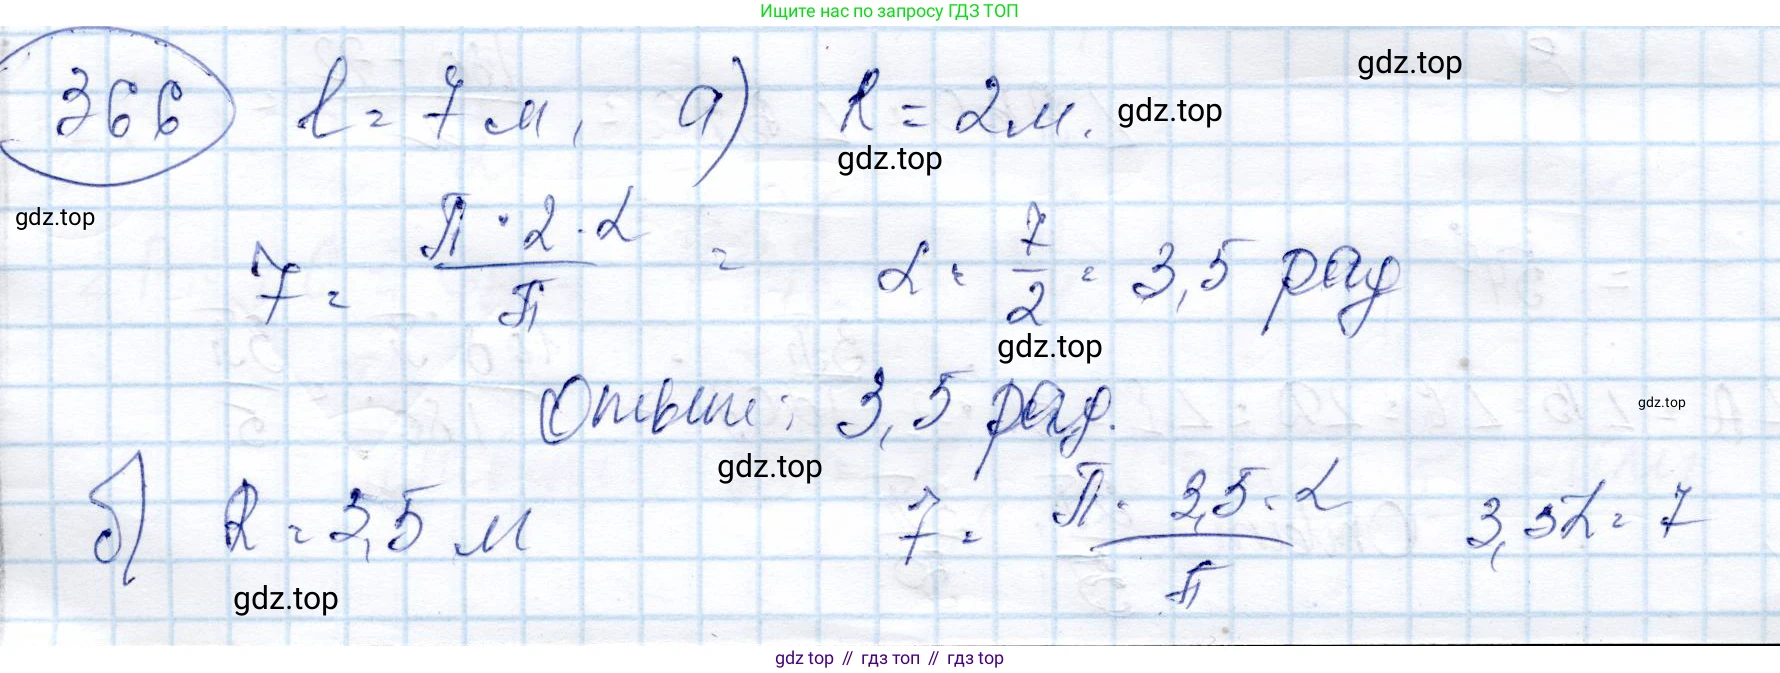 Ищите нас по запросу ГДЗ ТОП
gdz.top
366 l = 7 м, а) R = 2 м. gdz.top
gdz.top
gdz.top
7 = π · 2 · α / π = α = 7/2 = 3,5 рад
gdz.top
Ответ: 3,5 рад.
gdz.top
gdz.top
б) R = 3,5 м 7 = π · 3,5 · α / π 3,5α = 7
gdz.top
gdz top // гдз топ // гдз top